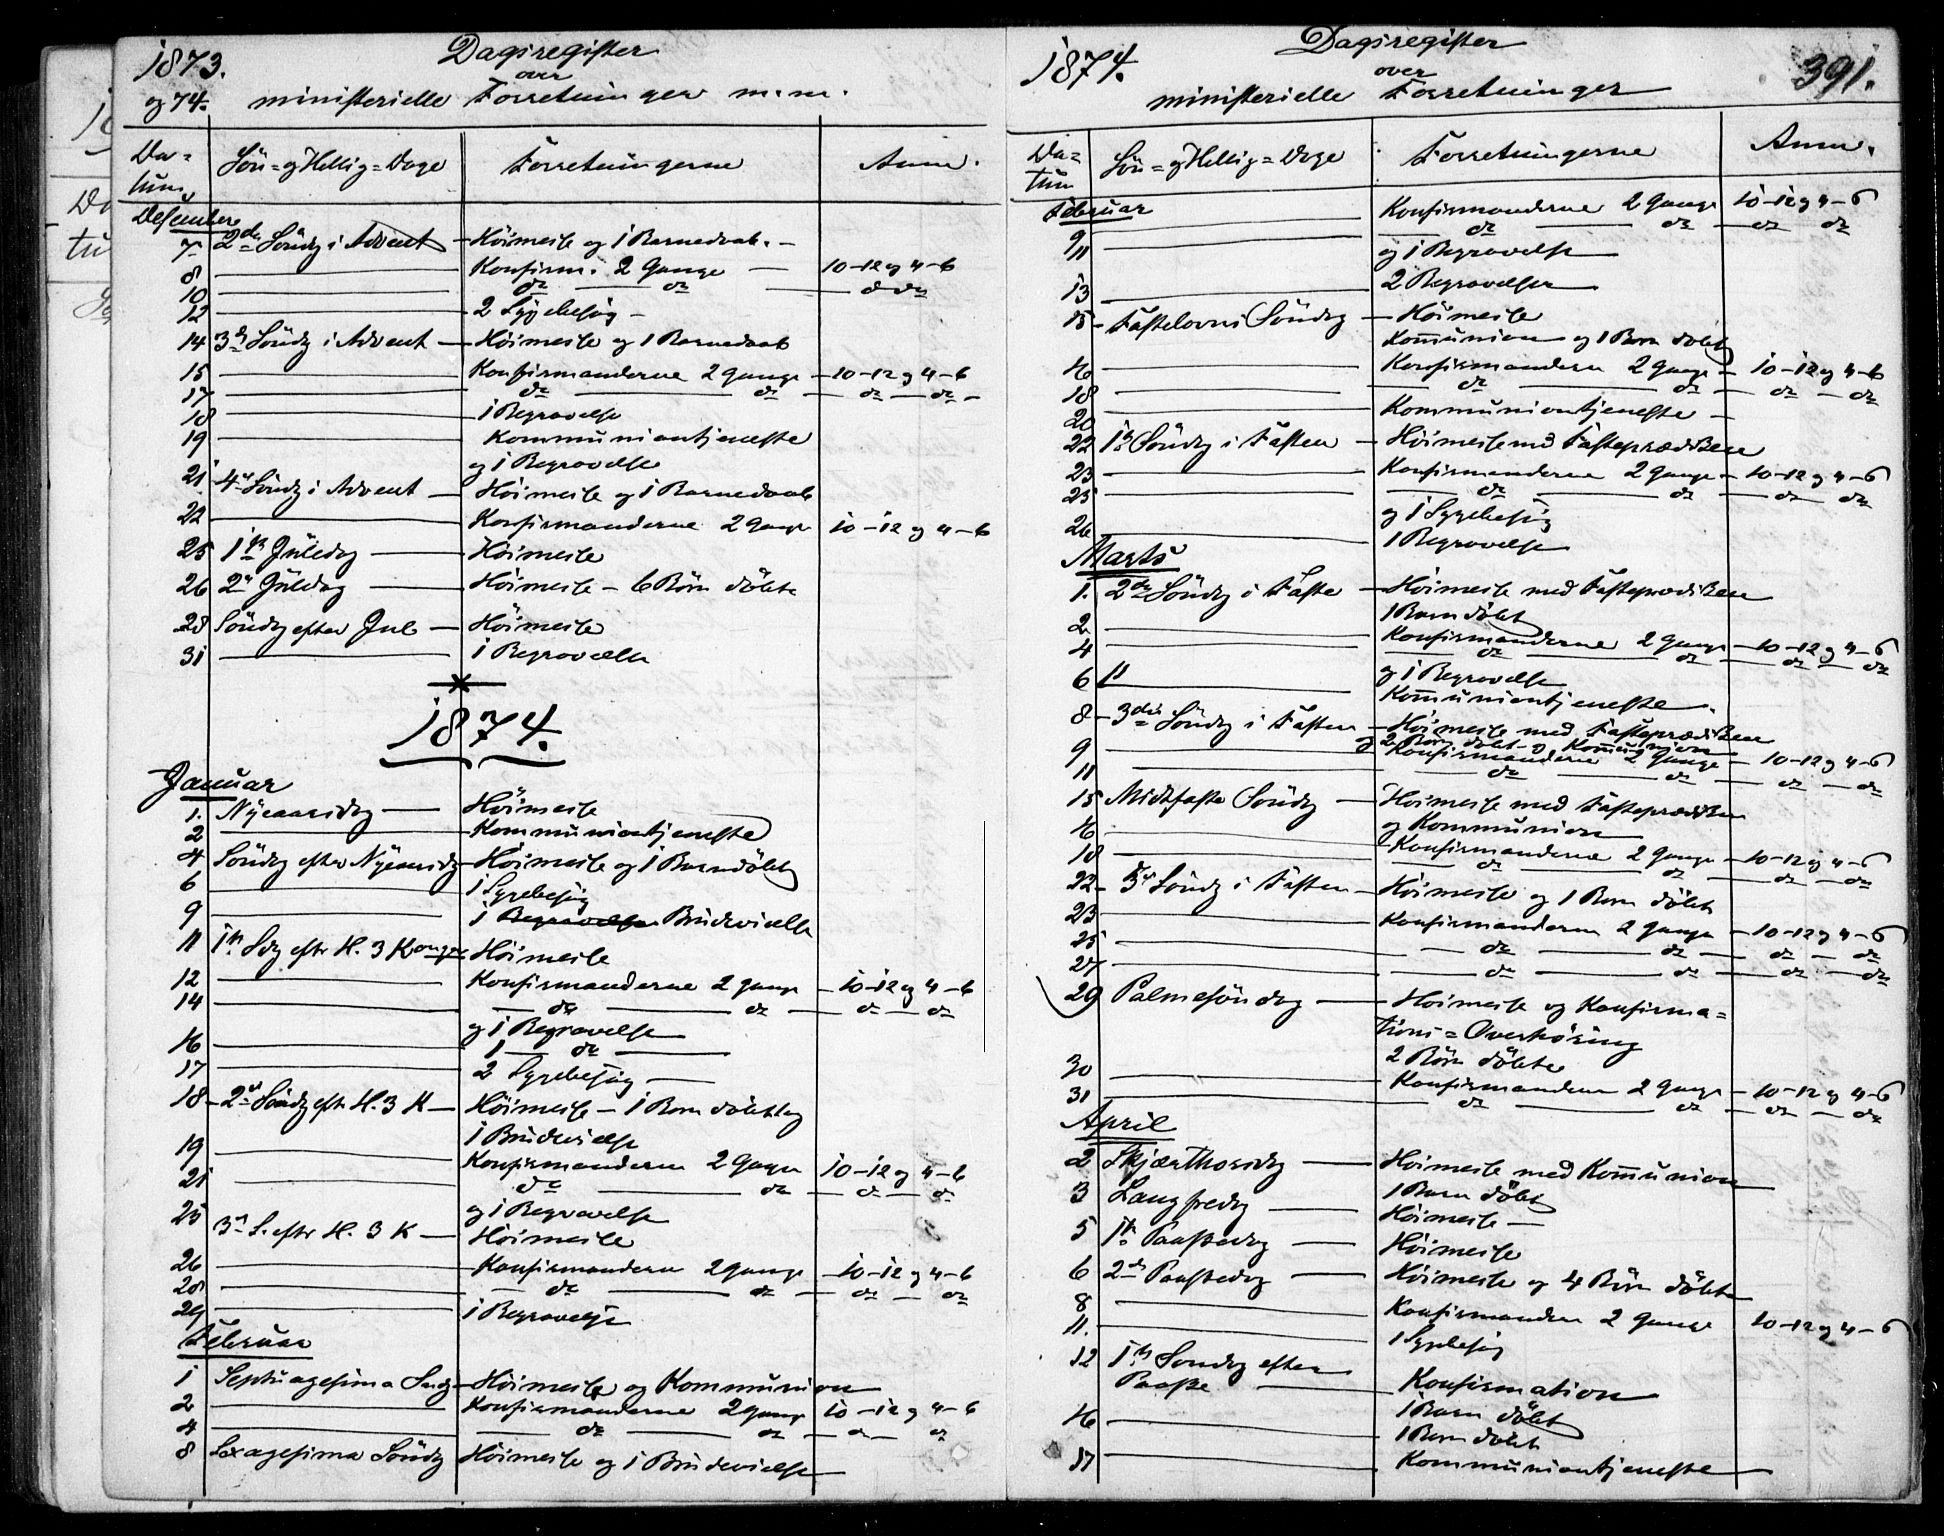 1873. Dagsregister
over
og 74. ministerielle Forretninger m.m.
Datum Sön- og Hellig-Dage Forretningerne Anm.
Desember
7 2den Söndg i Advent Höimesse og 1 Barnedaab.
8 Konfirm. 2 Gange 10-12 og 4-6
10 do do do do
12 2 Sygebesög
14 3die Söndg i Advent Höimesse og 1 Barnedaab
15 Konfirmanderne 2 gange 10-12 og 4-6
17 do do do do
18 1 Begravelse
19 Kommuniontjeneste
og 1 Begravelse
21 4de Söndg i Advent Höimesse og 1 Barnedaab
22 Konfirmanderne 2 Gange 10-12 og 4-6
25 1ste Juledag Höimesse
26 2den Juledag Höimesse - 6 Börn döbte
28 Söndg efter Jul Höimesse
31 1 Begravelse
1874.
Januar
1. Nyeaarsdg Höimesse
2 Kommuniontjeneste
4 Söndg efter Nyeaarsdg Höimesse og 1 Barn döbt
6 1 Sygebesög
9 1 Begravelse Brudevielse
11 1ste Sdg eftr H. 3 Konger Höimesse
12 Konfirmanderne 2 gange 10-12 og 4-6
14 do do do do
og 1 Begravelse
16 1 do
17 2 Sygebesög
18 2den Söndg eftr H. 3 K Höimesse - 1 Barn döbt og
1 Brudevielse
19 Konfirmanderne 2 Gange 10-12 og 4-6
21 do do do do
og 1 Begravelse
25 3die S. eftr H. 3 K Höimesse
26 Konfirmanderne 2 gange 10-12 og 4-6
28 do do do do
29 1 Begravelse
Februar
1 Septuagesima Sndg Höimesse og Kommunion
2 Konfirmanderne 2 gange 10-12 og 4-6
4 do do do do
8 Sexagesima Söndg Höimesse og 1 Brudevielse
1874. Dagsregister 391.
over
ministerielle Forretninger
Datum Sön- og Hellig-Dage Forretningerne Anm.
Februar
9 Konfirmanderne 2 Gange 10-12 og 4-6
11 do do do do
og 1 Begravelse
13 2 Begravelser
15 Fastelavns Söndg Höimesse
Kommunion og 1 Barn döbt
16 Konfirmanderne 2 Gange 10-12 og 4-6
18 do do do do
20 Kommuniontjeneste
22 1ste Söndg i Fasten Höimesse med Fasteprædiken
23 Konfirmanderne 2 Gange 10-12 og 4-6
25 do do do do
og 1 Sygebesög
26 1 Begravelse
Marts
1. 2den Söndg i Faste Höimesse med Fasteprædiken
1 Barn döbt
2 Konfirmanderne 2 Gange 10-12 og 4-6
4 do do do do
og 1 Begravelse
6 Kommuniontjeneste
8 3die Söndg i Fasten Höimesse med Fasteprædiken
og 2 Börn döbt og Kommunion
9 Konfirmanderne 2 Gange 10-12 og 4-6
11 do do do do
15 Midtfaste Söndg Höimesse med Fasteprædiken
og Kommunion
16 Konfirmanderne 2 Gange 10-12 og 4-6
18 do do do do
22 5te Söndg i Fasten Höimesse og 1 Barn döbt
23 Konfirmanderne 2 Gange 10-12 og 4-6
25 do do do do
27 do do do do
29 Palmesöndag Höimesse og Konfirma-
tions-Overhöring
2 Börn döbte
30 Konfirmanderne 2 Gange 10-12 og 4-6
31 do do do do
April
2 Skjærthorsdg Höimesse med Kommunion
1 Barn döbt
3 Langfredg Höimesse
5 1ste Paaskedag Höimesse
6 2den Paaskedag Höimesse og 4 Börn döbte
8 Konfirmanderne 2 Gange 10-12 og 4-6
11. 1 Sygebesög
12 1ste Söndag efter
Paaske Konfirmation
1 Barn döbt
16 1 Barn döbt
17 Kommuniontjeneste